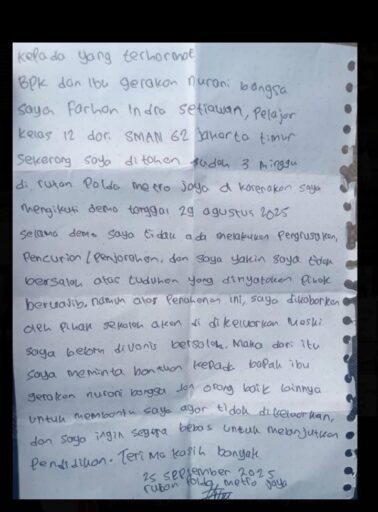 Kepada yang terhormat
BPK dan Ibu gerakan nurani bangsa
saya Farhan Indra Setiawan, Pelajar
kelas 12 dari SMAN 62 Jakarta timur
Sekarang saya ditahan sudah 3 minggu
di rutan Polda metro jaya di karenakan saya
mengikuti demo tanggal 29 agustus 2025
selama demo saya tidak ada melakukan Pengrusakan,
Pencurian/Penjarahan, dan saya yakin saya tidak
bersalah atas tuduhan yang dinyatakan Pihak
berwajib. namun atas Penahanan ini, saya dikabarkan
oleh Pihak sekolah akan di dikeluarkan Meski
saya belom divonis bersalah. Maka dari itu
saya meminta bantuan kepada bapak ibu
gerakan nurani bangsa dan orang baik lainnya
untuk membantu saya agar tidak dikeluarkan,
dan saya ingin segera bebas untuk melanjutkan
Pendidikan. Terima kasih banyak
25 september 2025
rutan Polda metro jaya